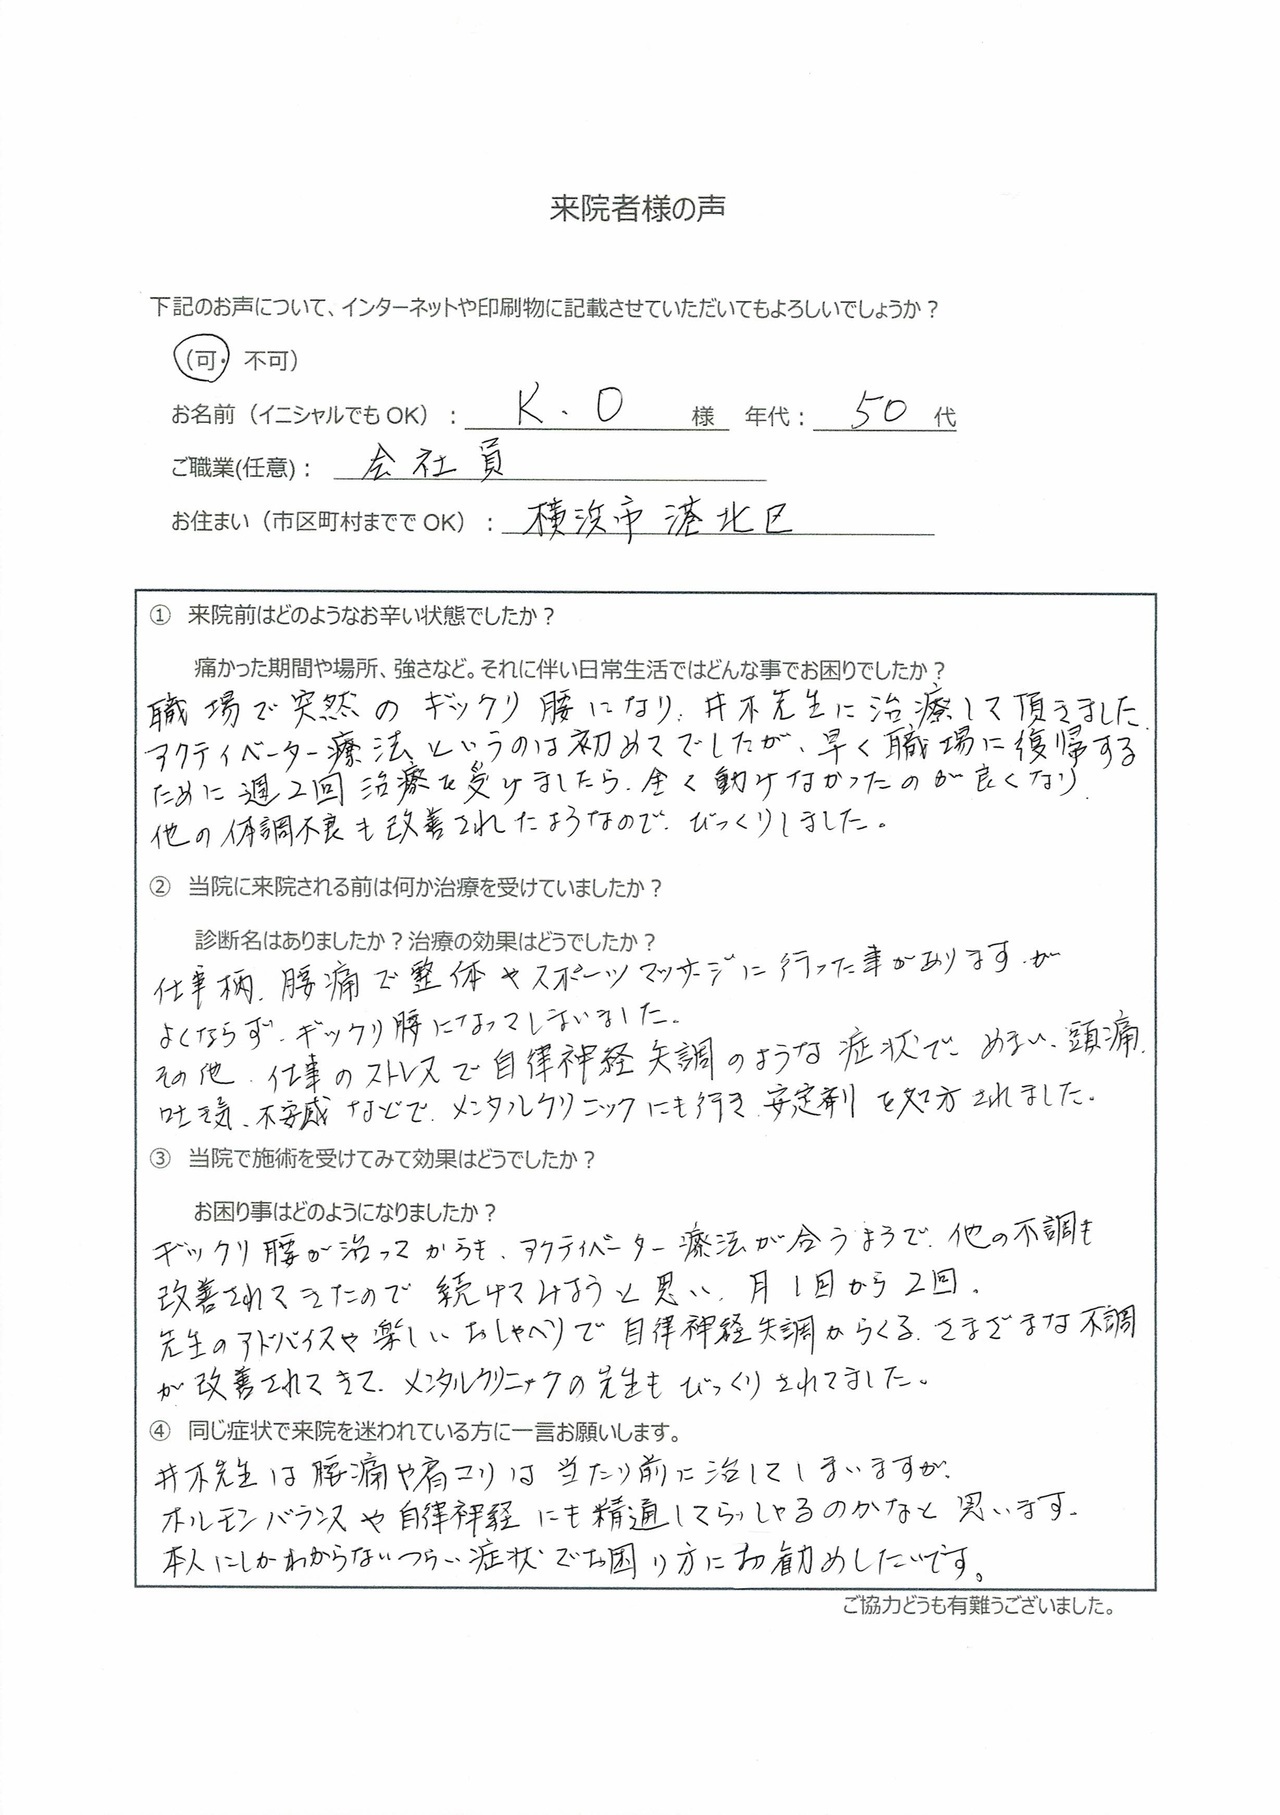 来院者様の声
下記のお声について、インターネットや印刷物に記載させていただいてもよろしいでしょうか？
（可・ 不可）
お名前（イニシャルでも OK）： K.O 様 年代： 50 代
ご職業(任意)： 会社員
お住まい（市区町村まで OK）： 横浜市港北区
① 来院前はどのようなお辛い状態でしたか？
痛かった期間や場所、強さなど。それに伴い日常生活ではどんな事でお困りでしたか？
職場で突然のギックリ腰になり、井木先生に治療して頂きました。
アクティベーター療法というのは初めてでしたが、早く職場に復帰する
ために週2回治療を受けましたら、全く動けなかったのが良くなり
他の体調不良も改善されたようなので、びっくりしました。
② 当院に来院される前は何か治療を受けていましたか？
診断名はありましたか？治療の効果はどうでしたか？
仕事柄、腰痛で整体やスポーツマッサージに行った事がありますが
よくならず、ギックリ腰になってしまいました。
その他、仕事のストレスで自律神経失調のような症状で、めまい、頭痛、
吐き気、不安感などで、メンタルクリニックにも行き、安定剤を処方されました。
③ 当院で施術を受けてみて効果はどうでしたか？
お困り事はどのようになりましたか？
ギックリ腰が治ってからも、アクティベーター療法が合うようで、他の不調も
改善されてきたので続けてみようと思い、月1回から2回。
先生のアドバイスや楽しいおしゃべりで自律神経失調からくる、さまざまな不調
が改善されてきて、メンタルクリニックの先生もびっくりされてました。
④ 同じ症状で来院を迷われている方に一言お願いします。
井木先生は腰痛や肩コリは当たり前に治してしまいますが、
ホルモンバランスや自律神経にも精通してらっしゃるのかなと思います。
本人にしかわからないつらい症状でお困り方にお勧めしたいです。
ご協力どうも有難うございました。